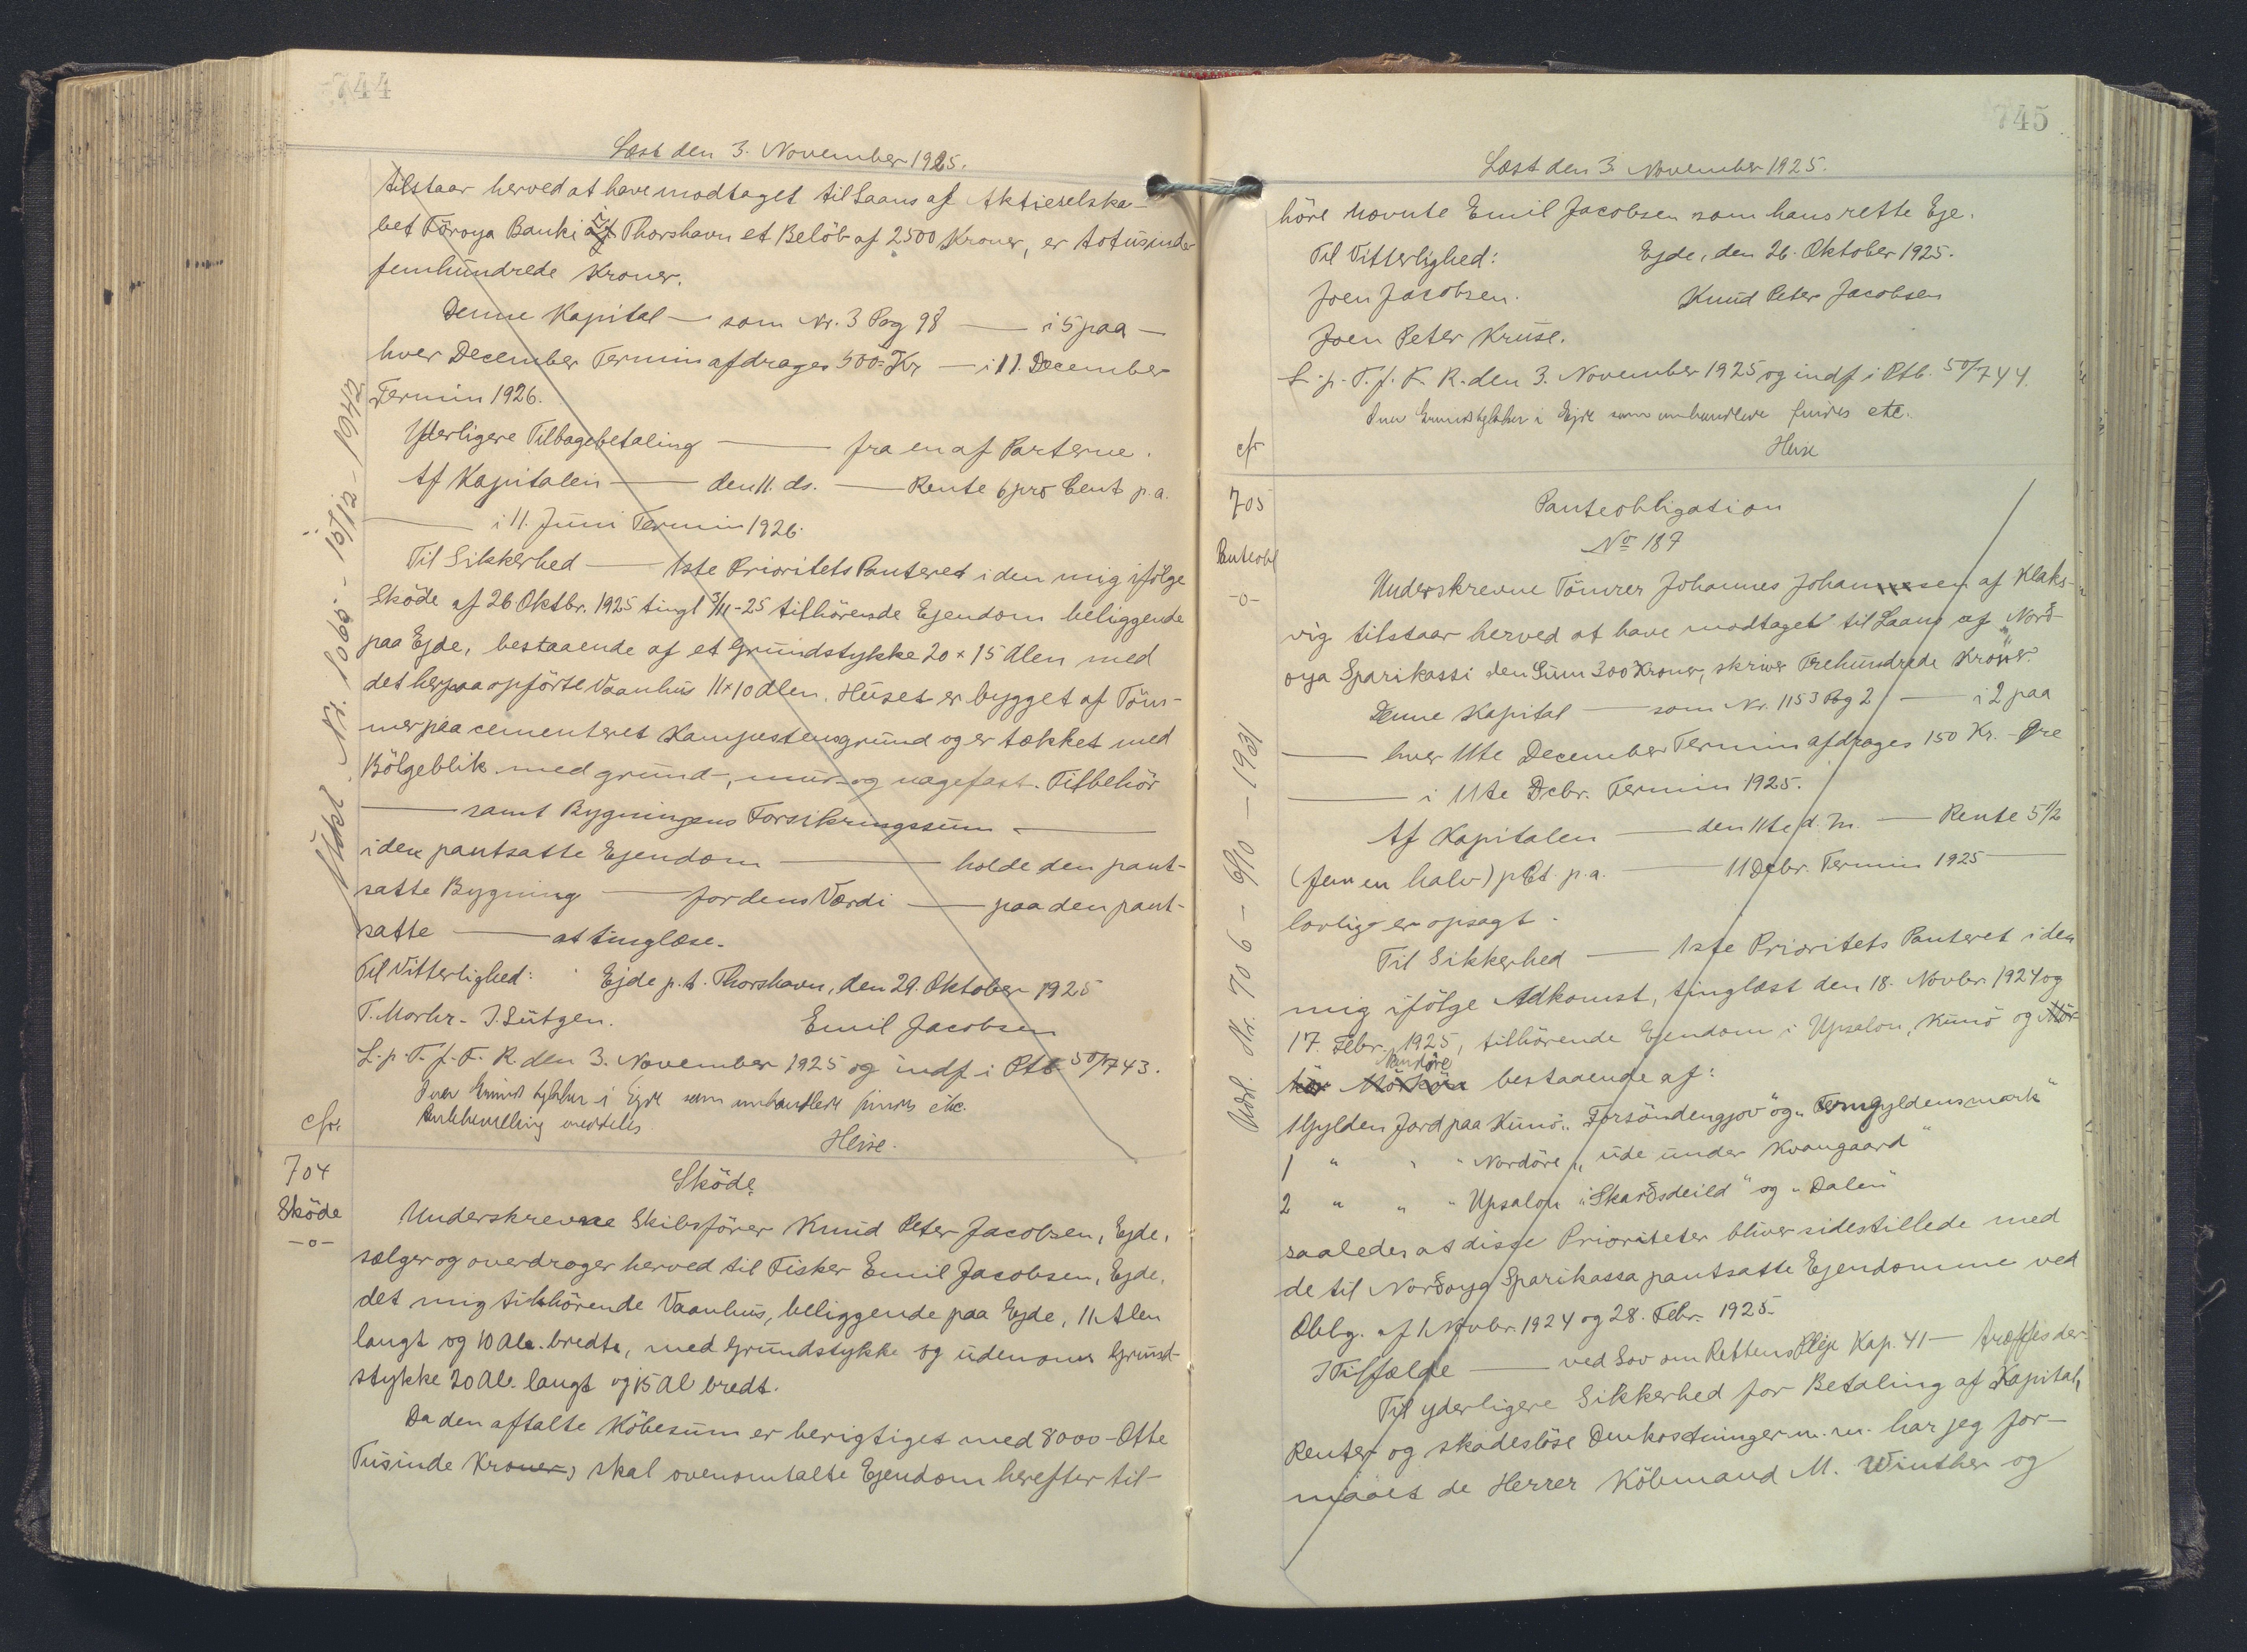 744
Læst den 3. November 1925.
tilstaar herved at have modtaget til Laans af Aktieselska-
bet Föroya Banki i Thorshavn et Belöb af 2500 Kroner, er totusinder
femhundrede Kroner.
Denne Kapital — som Nr. 3 Pag 98 — i 5 paa —
hver December Termin afdrages 500 Kr — i 11. December
Termin 1926.
Yderligere Tilbagebetaling — fra en af Parterne.
Af Kapitalen — den 11. ds. — Rente 6 pro Cent p.a.
— i 11. Juni Termin 1926.
Til Sikkerhed — 1ste Prioritets Panteret i den mig ifölge
Sköde af 26 Oktbr. 1925 tingl 3/11-25 tilhörende Ejendom beliggende
paa Ejde, bestaaende af et Grundstykke 20 x 15 Alen med
det herpaa opförte Vaanhus 11 x 10 Alen. Huset er bygget af Töm-
mer paa cementeret Kampestensgrund og er tækket med
Bölgeblik med grund-, mur- og nagefast Tilbehör
— samt Bygningens Forsikringssum —
i den pantsatte Ejendom — holde den pant-
satte Bygning — for dens Værdi — paa den pant-
satte — at tinglæse.
Til Vitterlighed: Ejde p.t. Thorshavn, den 29. Oktober 1925
T. Morhr - J. Lütgen. Emil Jacobsen
L. p. T. f. F. R. den 3. November 1925 og indf i Ptb. 50/743.
Över Grundstykker i Ejde som umhandlede findes etc.
meddeles.
Heise.
cfr.
Udsl. Nr. 1060 - 15/12 - 1942
704
Sköde
-o-
Sköde
Underskrevne Skibsförer Knud Peter Jacobsen, Ejde,
sælger og overdrager herved til Fisker Emil Jacobsen, Ejde,
det mig tilhörende Vaanhus, beliggende paa Ejde, 11 Alen
langt og 10 Ale. bredte, med Grundstykke og udenoms Grund-
stykke 20 Al. langt og 15 Al bredt.
Da den aftalte Köbesum er berigtiget med 8000 - Otte
Tusinde Kroner, skal ovenomtalte Ejendom herefter til-
745
Læst den 3. November 1925.
höre nævnte Emil Jacobsen som hans rette Eje.
Til Vitterlighed: Ejde, den 26. Oktober 1925.
Joen Jacobsen. Knud Peter Jacobsen
Joen Peter Kruse.
L. p. T. f. F. R. den 3. November 1925 og indf i Ptb. 50/744.
Grundstykker i Ejde som umhandlede findes etc.
Heise
cfr
705
Panteobl
-o-
Panteobligation
No 187
Underskrevne Tömrer Johannes Johannesen af Klaks-
vig tilstaar herved at have modtaget til Laans af „Norð-
oya Sparikassi" den Sum 300 Kroner, skriver Trehundrede Kroner.
Denne Kapital — som Nr. 1153 Pag 2 — i 2 paa
— hver 11te December Termin afdrages 150 Kr. - Øre
— i 11te Dcbr. Termin 1925.
Af Kapitalen — den 11te d. M. — Rente 5 1/2
(fem en halv) pCt. p.a. — 11 Dcbr. Termin 1925 —
lovlig er opsagt.
Til Sikkerhed — 1ste Prioritets Panteret i den
mig ifölge Adkomst, tinglæst den 18. Novbr. 1924 og
17. Febr. 1925, tilhörende Ejendom i Upsalon, Kunö og
Nordöre bestaaende af:
1 Gylden Jord paa Kunö „Forsöndengjov" og „Femgyldensmark"
1 " " " Nordöre „ude under Kvangaard"
2 " " " Upsalon „i Skarðsdeild" og „Dalen"
saaledes at disse Prioriteter bliver sidestillede med
de til Norðoya Sparikassa pantsatte Ejendomme ved
Oblg. af 1 Novbr. 1924 og 28. Febr. 1925.
I Tilfælde — ved Lov om Rettens Pleje Kap. 41 — træffes der.
Til yderligere Sikkerhed for Betaling af Kapital,
Renter og skadeslöse Omkostninger m.m. har jeg for-
maaet de Herrer Köbmand M. Winther og
Udsl. Nr. 706 - 6/10 - 1931